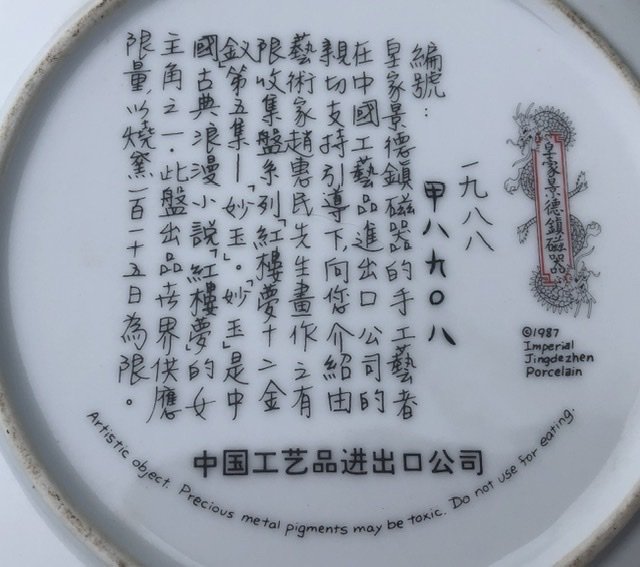 皇家景德鎮磁器
©1987
Imperial
Jingdezhen
Porcelain
一九八八
編號：甲八九〇八
皇家景德鎮磁器的手工藝者
在中國工藝品進出口公司的
親切支持引導下,向您介紹由
藝術家趙惠民先生畫作之有
限收集盤系列「紅樓夢十二金
釵」第五集—「妙玉」。「妙玉」是中
國古典浪漫小說「紅樓夢」的女
主角之一.此盤出品世界供應
限量,以燒窯一百一十五日為限。
中国工艺品进出口公司
Artistic object. Precious metal pigments may be toxic. Do not use for eating.